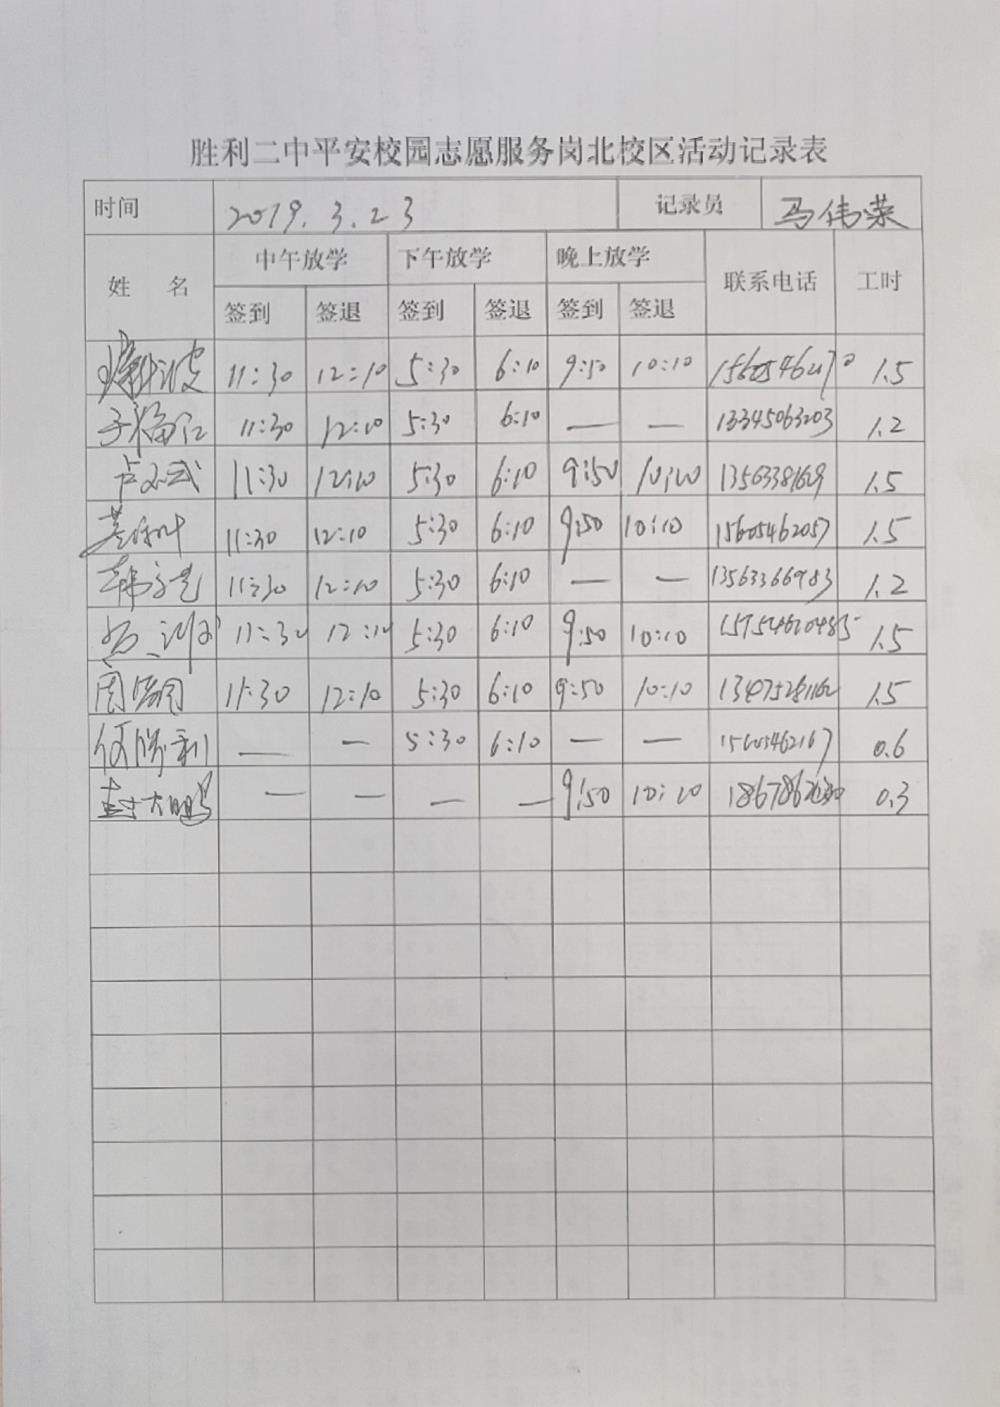 胜利二中平安校园志愿服务岗北校区活动记录表
时间 2019.3.23 记录员 马伟荣
姓 名 中午放学 下午放学 晚上放学 联系电话 工时
签到 签退 签到 签退 签到 签退
11:30 12:10 5:30 6:10 9:50 10:10 1.5
于福江 11:30 12:10 5:30 6:10 — — 13345063203 1.2
11:30 12:10 5:30 6:10 9:50 10:10 1.5
11:30 12:10 5:30 6:10 9:50 10:10 15605462057 1.5
11:30 12:10 5:30 6:10 — — 13563366983 1.2
11:30 12:10 5:30 6:10 9:50 10:10 1.5
11:30 12:10 5:30 6:10 9:50 10:10 1.5
何胜利 — — 5:30 6:10 — — 15605462167 0.6
封大鹏 — — — — 9:50 10:10 0.3